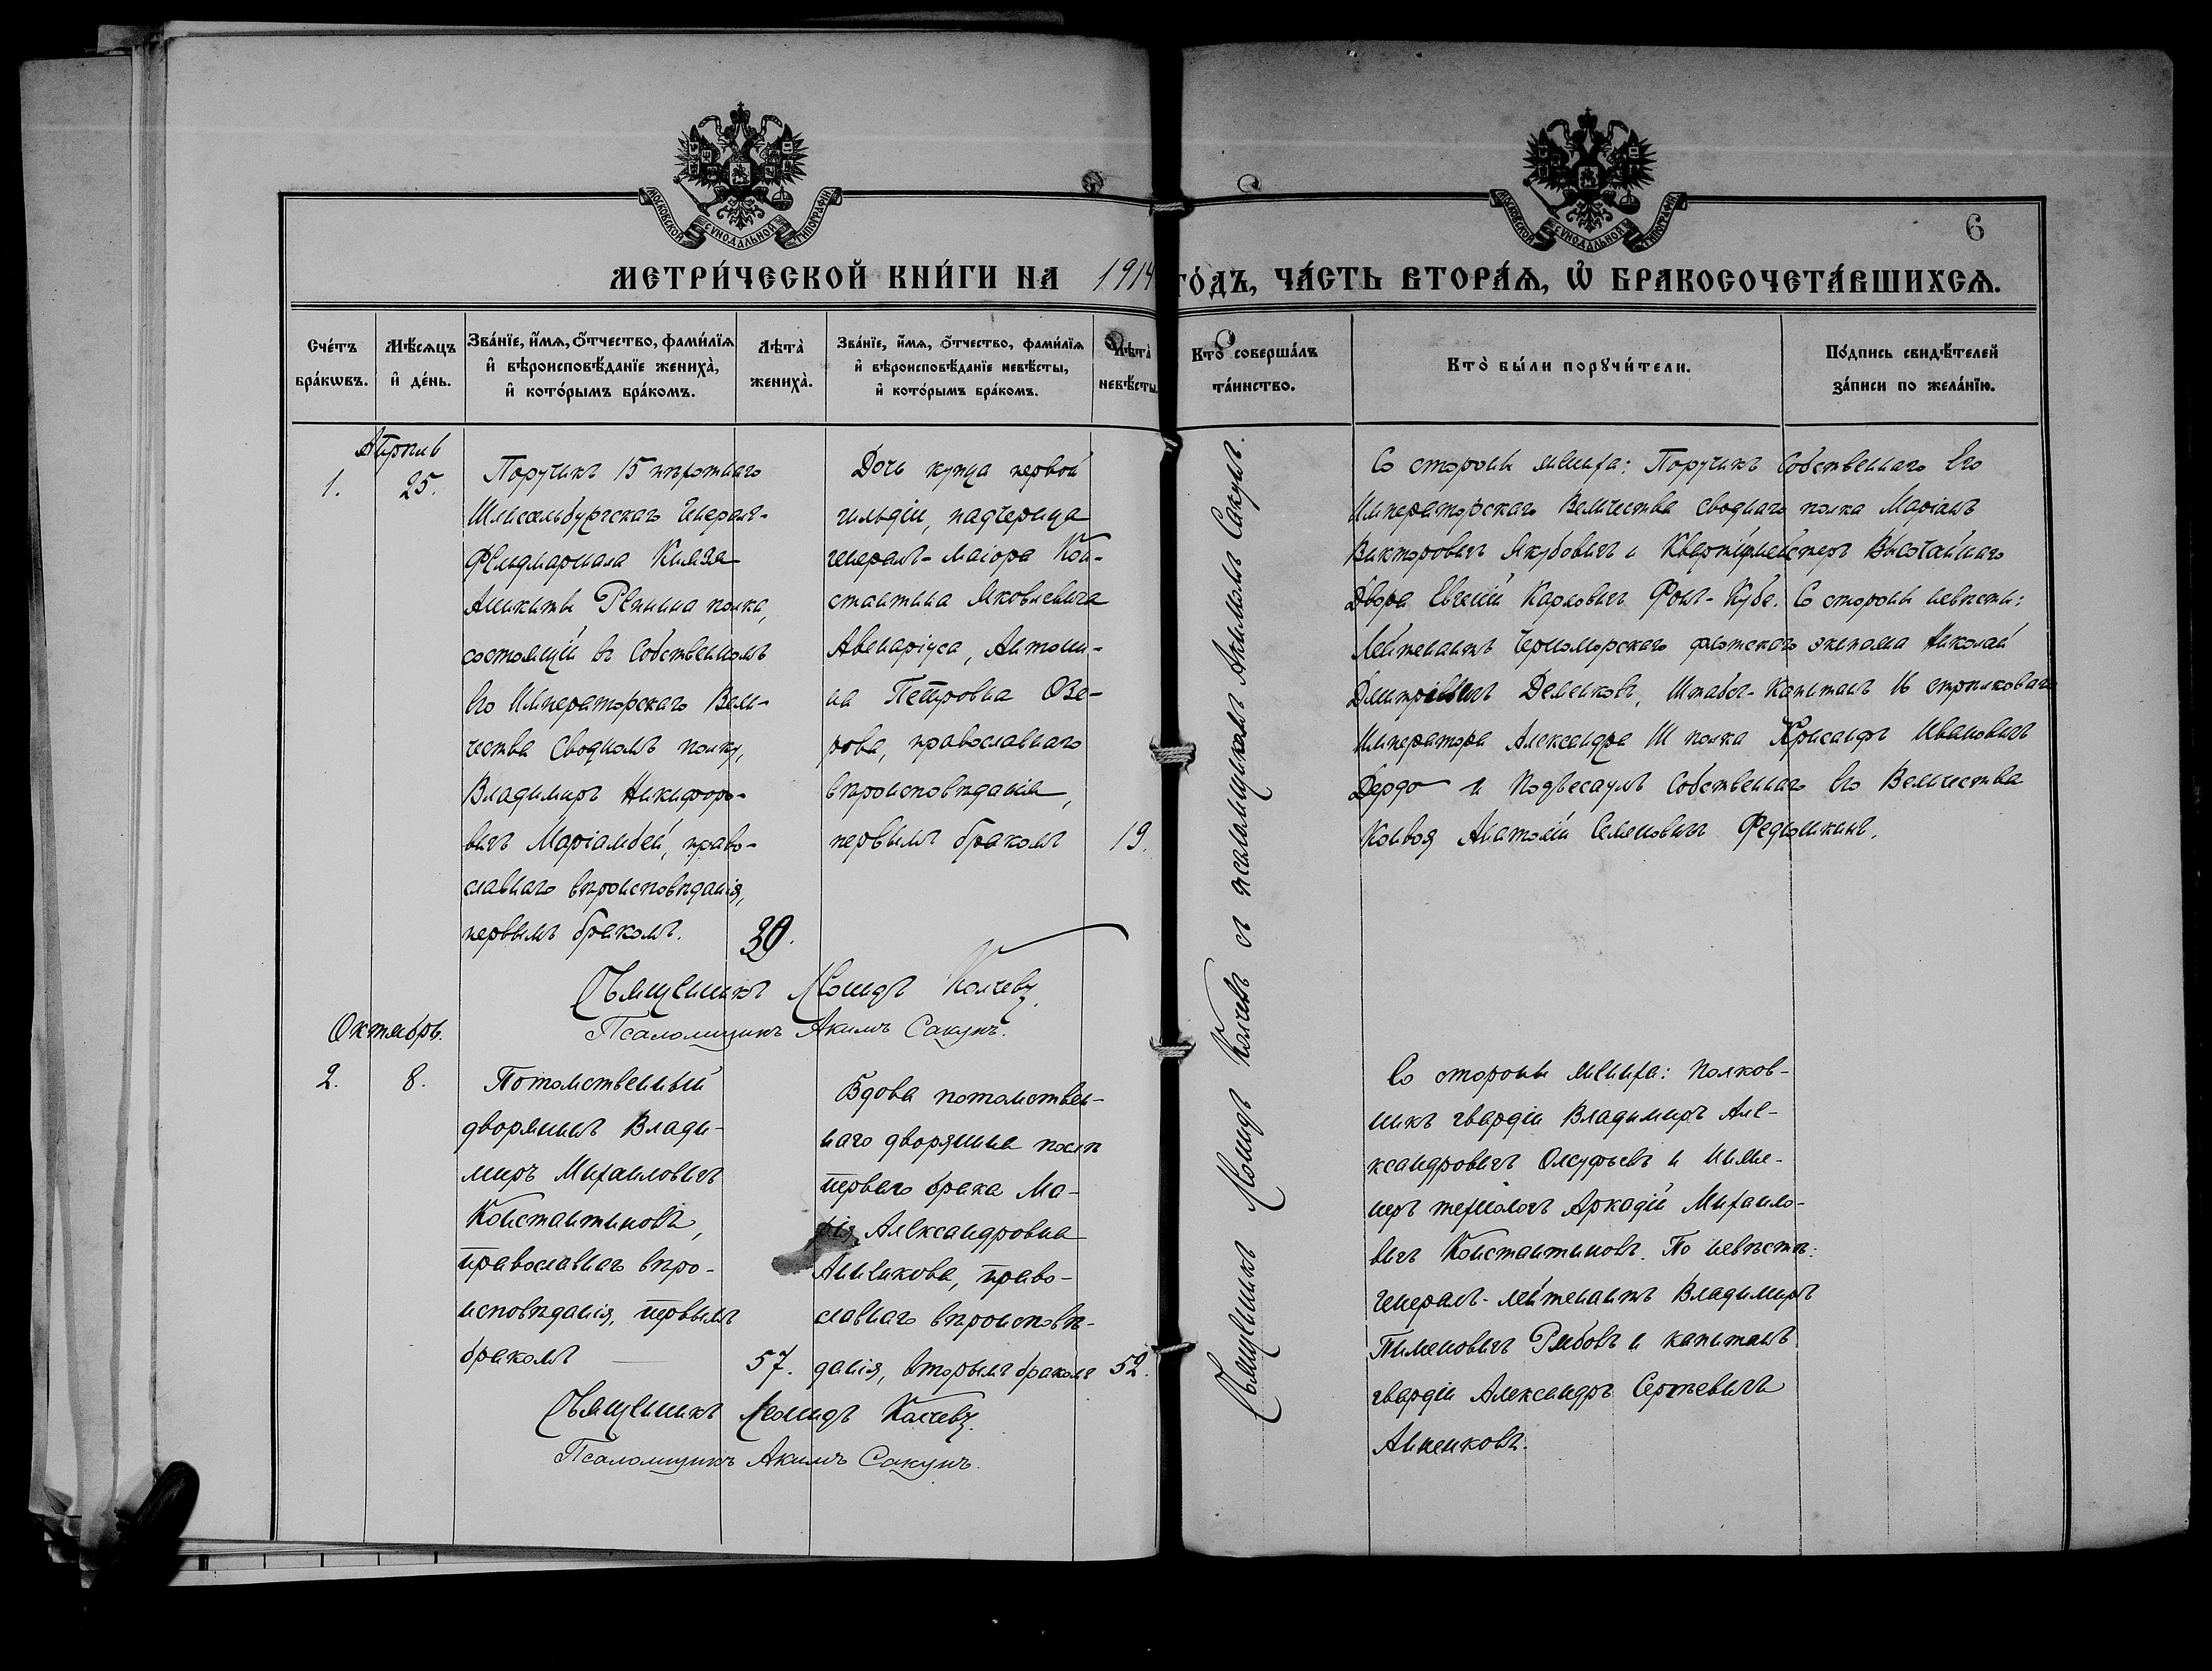 МОСКОВСКОЙ СУНОДАЛЬНОЙ ТИПОГРАФІИ
МОСКОВСКОЙ СУНОДАЛЬНОЙ ТИПОГРАФІИ
6
МЕТРИ́ЧЕСКОЙ КНИ́ГИ НА 1914 ГО́ДЪ, ЧА́СТЬ ВТОРА́Ѧ, Ѽ БРАКОСОЧЕТА́ВШИХСѦ.
Сче́тъ бра́кѡвъ.
Мѣ́сѧцъ и҆ де́нь.
Зва́нїе, и҆́мѧ, ѻ҆́тчество, фами́лїѧ
и҆ вѣроисповѣ́данїе жениха̀,
и҆ кото́рымъ бра́комъ.
Лѣта̀ жениха̀.
Зва́нїе, и҆́мѧ, ѻ҆́тчество, фами́лїѧ
и҆ вѣроисповѣ́данїе невѣ́сты,
и҆ кото́рымъ бра́комъ.
Лѣта̀ невѣ́сты.
Кто̀ соверша́лъ
та́инство.
Кто̀ бы́ли порꙋчи́тели.
По́дпись свидѣ́телей
за́писи по жела́нїю.
Апрѣль
1.
25.
Поручикъ 15 пѣхотнаго
Шлиссельбургскаго Генералъ-
Фельдмаршала Князя
Аникиты Репнина полка,
состоящій въ Собственномъ
Его Императорскаго Вели-
чества Сводномъ полку,
Владимиръ Никифоро-
вичъ Маріамбей, право-
славнаго вѣроисповѣданія,
первымъ бракомъ.
30.
Дочь купца первой
гильдіи, падчерица
генералъ-маіора Кон-
стантина Яковлевича
Авенаріуса, Антони-
на Петровна Озе-
рова, православнаго
вѣроисповѣданія,
первымъ бракомъ
19.
Священникъ Леонидъ Колчевъ съ псаломщикомъ Акимомъ Сакунъ.
Со стороны жениха: Поручикъ Собственнаго Его
Императорскаго Величества Своднаго полка Маріанъ
Викторовичъ Якубовичъ и Квартирмейстеръ Высочайшаго
Двора Евгеній Карловичъ Фонъ-Кубе. Со стороны невѣсты:
Лейтенантъ Черноморскаго флотскаго экипажа Николай
Дмитріевичъ Деменковъ, Штабсъ-Капитанъ 16 стрѣлковаго
Императора Александра III полка Хрисанфъ Ивановичъ
Дердо и Подъесаулъ Собственнаго Его Величества
Конвоя Анатолій Семеновичъ Федюшкинъ.
Священникъ Леонидъ Колчевъ.
Псаломщикъ Акимъ Сакунъ.
Октябрь.
2.
8.
Потомственный
дворянинъ Влади-
миръ Михаиловичъ
Константиновъ,
православнаго вѣро-
исповѣданія, первымъ
бракомъ
57.
Вдова потомствен-
наго дворянина послѣ
перваго брака Ма-
рія Александровна
Анненкова, право-
славнаго вѣроисповѣ-
данія, вторымъ бракомъ
52.
Со стороны жениха: полков-
никъ гвардіи Владимиръ Але-
ксандровичъ Олсуфьевъ и инже-
неръ технологъ Аркадій Михаило-
вичъ Константиновъ. По невѣстѣ:
Генералъ-лейтенантъ Владимиръ
Пименовичъ Рыбовъ и капитанъ
гвардіи Александръ Сергѣевичъ
Анненковъ.
Священникъ Леонидъ Колчевъ.
Псаломщикъ Акимъ Сакунъ.